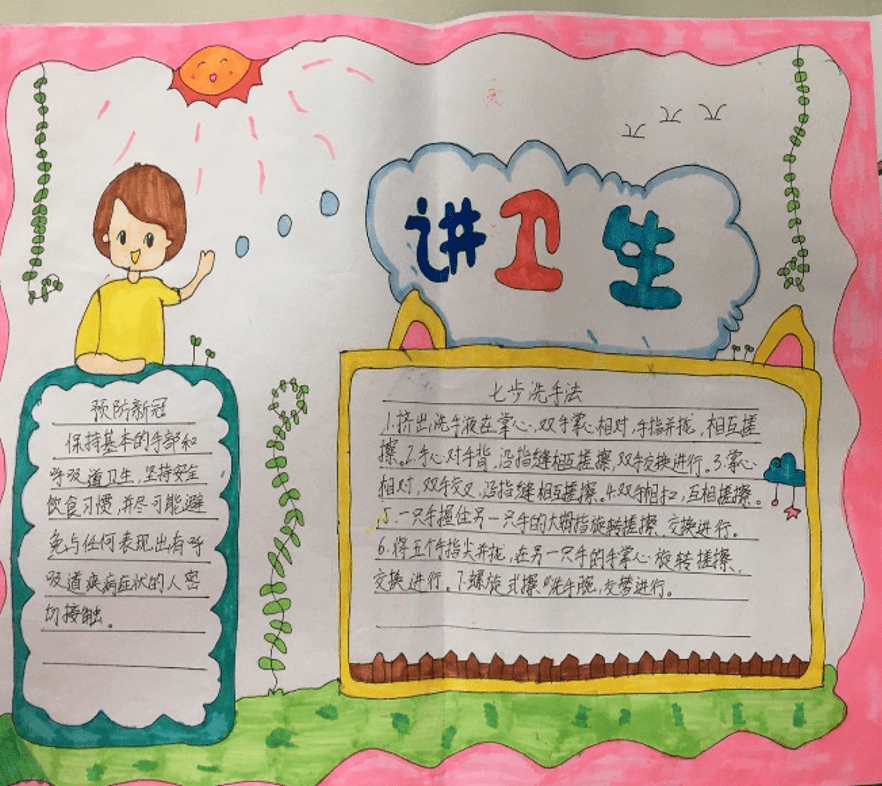 讲卫生
预防新冠
保持基本的手部和
呼吸道卫生,坚持安全
饮食习惯,并尽可能避
免与任何表现出有呼
吸道疾病症状的人密
切接触。
七步洗手法
1.挤出洗手液在掌心,双手掌心相对,手指并拢,相互搓
擦。2.手心对手背,沿指缝相互搓擦,双手交换进行。3.掌心
相对,双手交叉,沿指缝相互搓擦。4.双手相扣,互相搓擦。
5.一只手握住另一只手的大拇指旋转搓擦,交换进行。
6.将五个手指尖并拢,在另一只手的手掌心旋转搓擦,
交换进行。7.螺旋式擦洗手腕,交替进行。